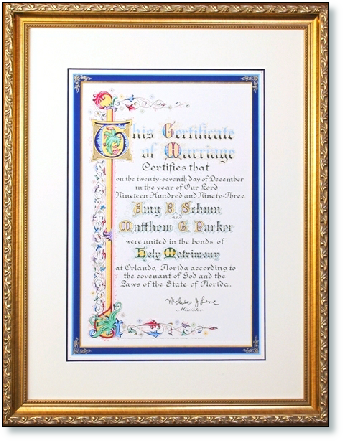 This Certificate
of Marriage
Certifies that
on the twenty-seventh day of December
in the year of Our Lord
Nineteen Hundred and Ninety-Three
Amy
Matthew G. Parker
were united in the bonds of
Holy Matrimony
at Orlando, Florida according to
the covenant of God and the
Laws of the State of Florida.